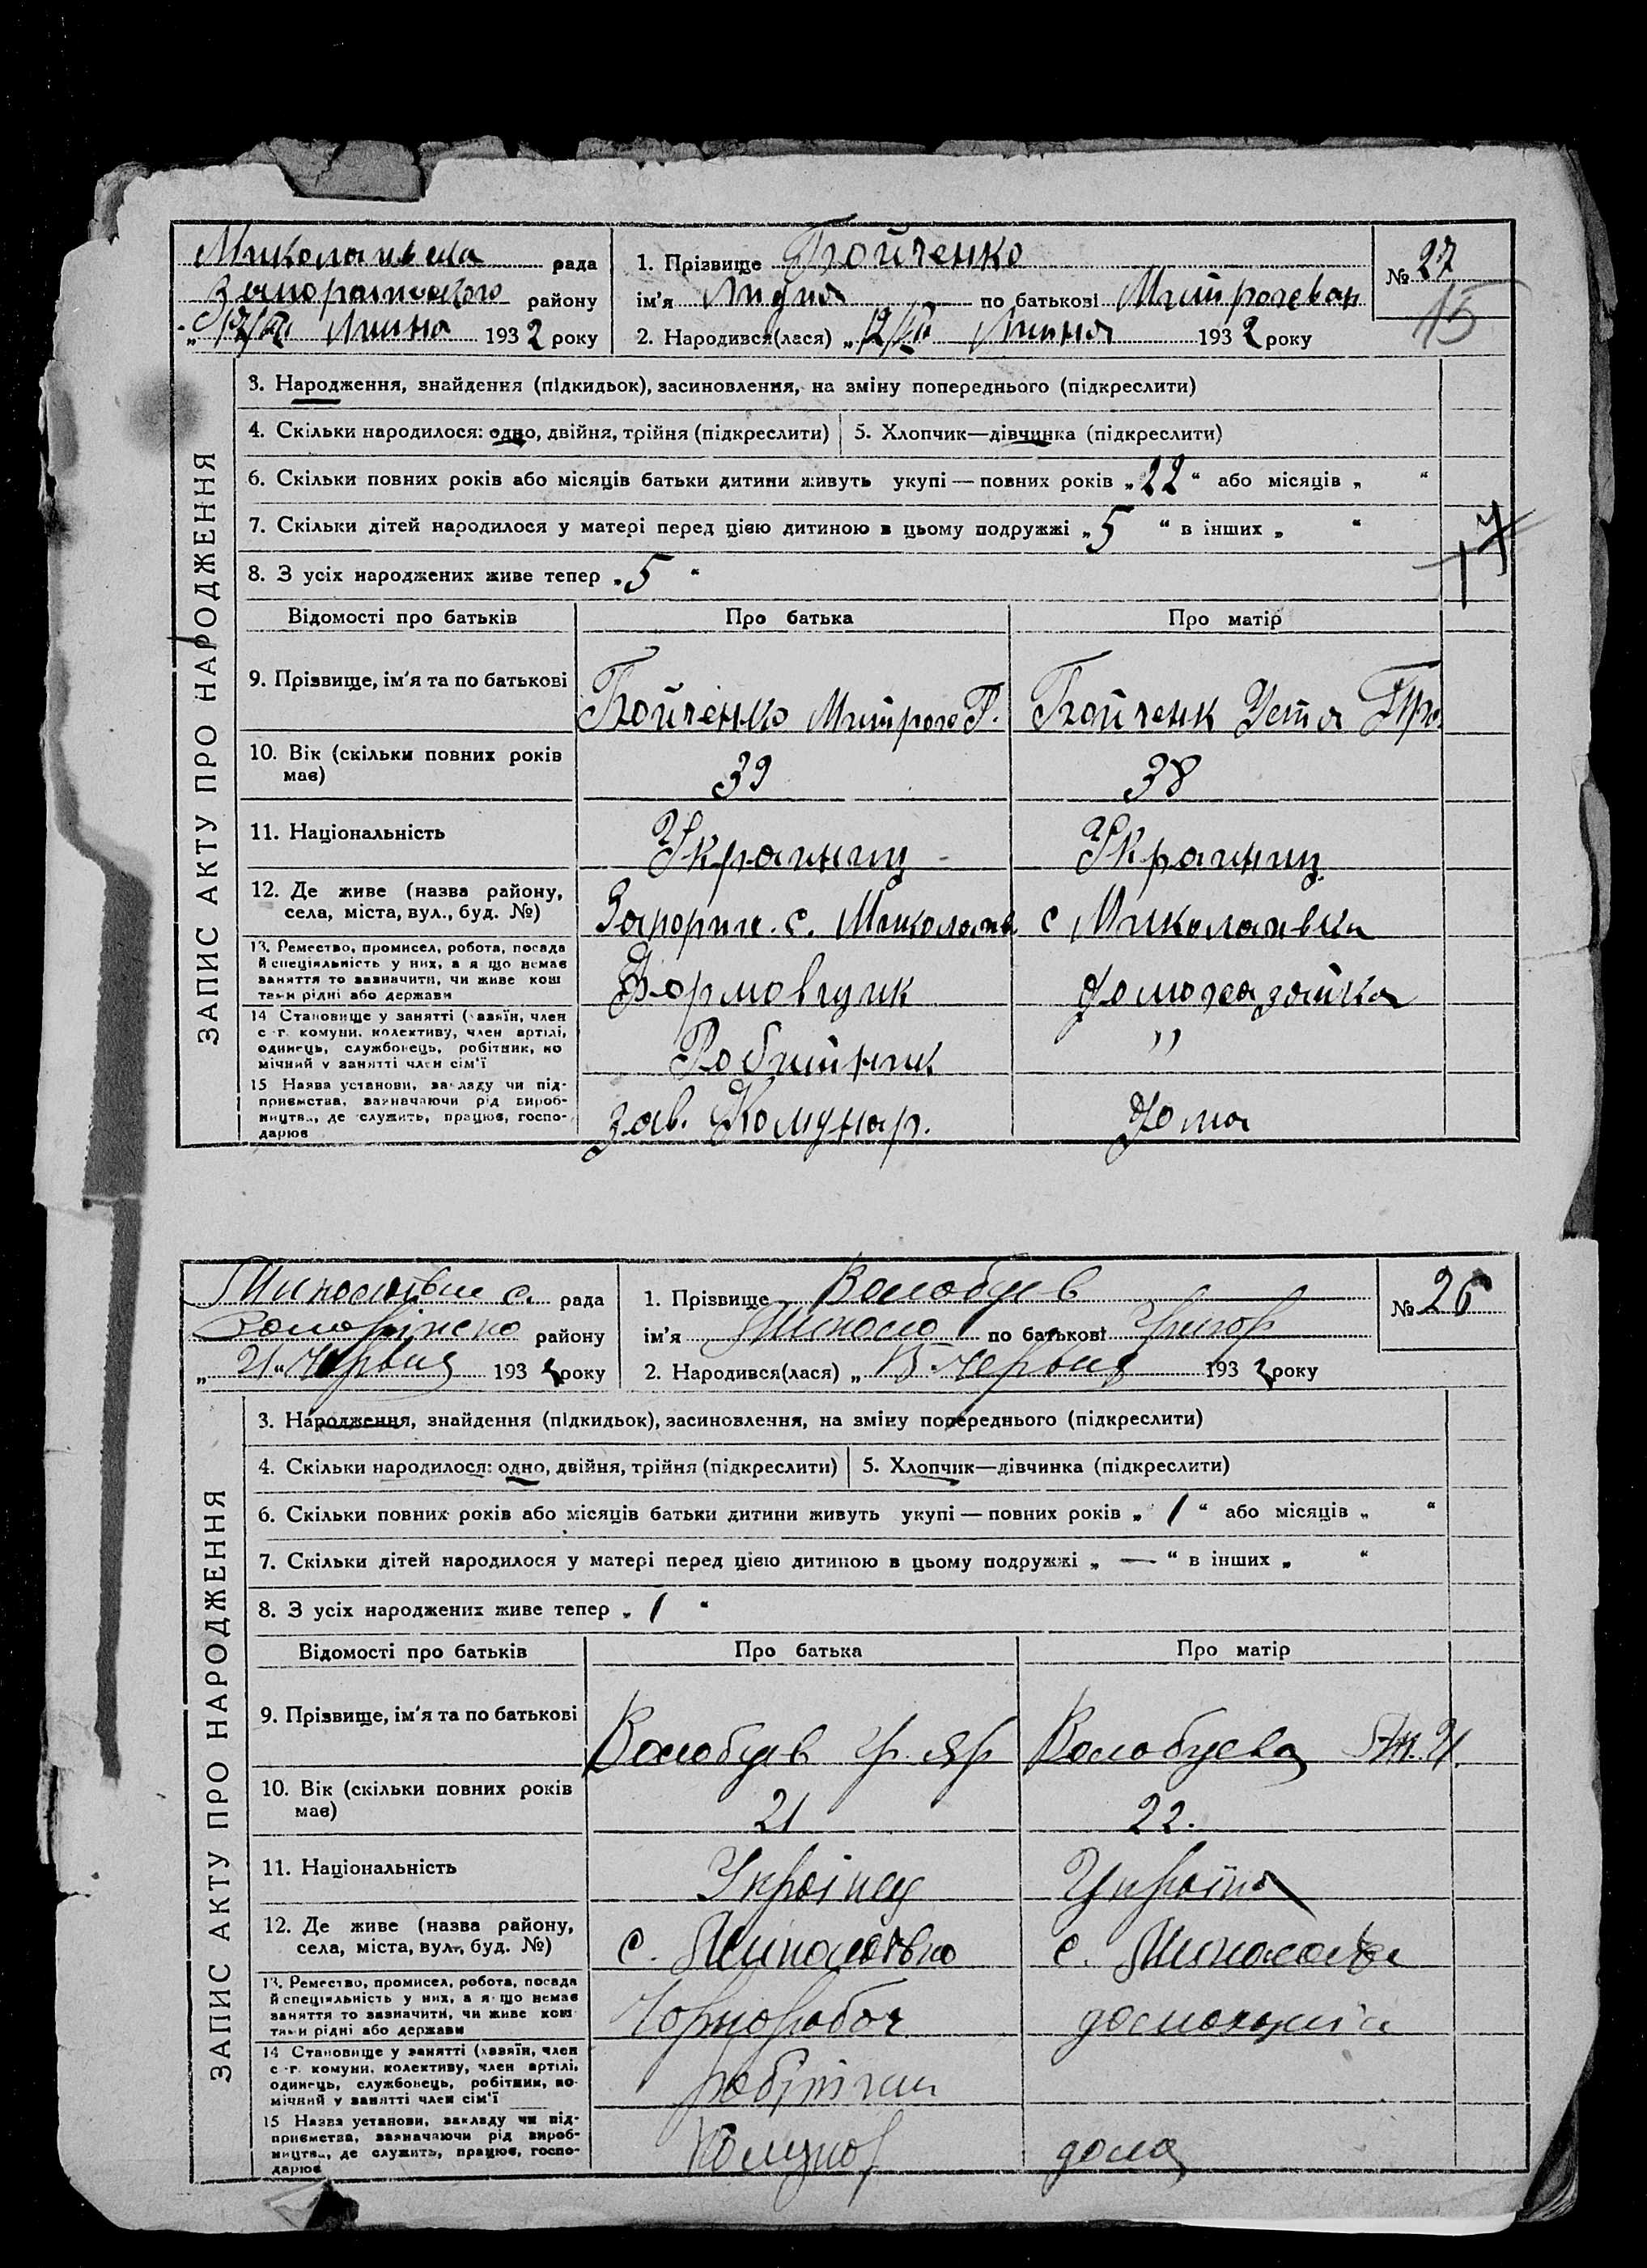 Миколаивска рада
району
Липня 1932 року
1. Прізвище Бойченко
ім'я Лидия по батькові Митрофеван
2. Народився(лася) „12/VII Липня 1932 року
№ 27
15
ЗАПИС АКТУ ПРО НАРОДЖЕННЯ
3. Народження, знайдення (підкидьок), засиновлення, на зміну попереднього (підкреслити)
4. Скільки народилося: одно, двійня, трійня (підкреслити) 5. Хлопчик—дівчинка (підкреслити)
6. Скільки повних років або місяців батьки дитини живуть укупі — повних років „22“ або місяців „ “
7. Скільки дітей народилося у матері перед цією дитиною в цьому подружжі „5 “ в інших „ “
17
8. З усіх народжених живе тепер „5 “
Відомості про батьків Про батька Про матір
9. Прізвище, ім'я та по батькові Бойченко Митрофе Г. Бойченк Устя Про.
10. Вік (скільки повних років
має) 39 38
11. Національність Украинец Украинец
12. Де живе (назва району,
села, міста, вул., буд. №) с. Миколаив. с Миколаивка
13. Ремество, промисел, робота, посада
й спеціяльність у них, а я що немає
заняття то зазначити, чи живе кош
тами рідні або держави Формовщик домохазяйка
14 Становище у занятті (хазяїн, член
с -г. комуни, колективу, член артілі,
одинець, службовець, робітник, по
мічний у занятті член сім'ї Робитник "
15 Назва установи, закладу чи під-
приємства, зазначаючи рід вироб-
ництв., де служить, працює, госпо-
дарює зав. Комунар. Дома
рада
району
„21“ Червня 1932 року
1. Прізвище Волобуев
ім'я Микола по батькові Григор
2. Народився(лася) „15 Червня 1932 року
№ 26
ЗАПИС АКТУ ПРО НАРОДЖЕННЯ
3. Народження, знайдення (підкидьок), засиновлення, на зміну попереднього (підкреслити)
4. Скільки народилося: одно, двійня, трійня (підкреслити) 5. Хлопчик—дівчинка (підкреслити)
6. Скільки повних років або місяців батьки дитини живуть укупі — повних років „ 1 “ або місяців „ “
7. Скільки дітей народилося у матері перед цією дитиною в цьому подружжі „ — “ в інших „ “
8. З усіх народжених живе тепер „ 1 “
Відомості про батьків Про батька Про матір
9. Прізвище, ім'я та по батькові Волобуев Гр. Яр Волобуева
10. Вік (скільки повних років
має) 21 22.
11. Національність Українец Україн
12. Де живе (назва району,
села, міста, вул., буд. №) с. Миколаівка с.
13. Ремество, промисел, робота, посада
й спеціяльність у них, а я що немає
заняття то зазначити, чи живе кош
тами рідні або держави Чорноробоч
14 Становище у занятті (хазяїн, член
с -г. комуни, колективу, член артілі,
одинець, службовець, робітник, по-
мічний у занятті член сім'ї робітник
15 Назва установи, закладу чи під-
приємства, зазначаючи рід вироб-
ництв., де служить, працює, госпо-
дарює Комунар дома